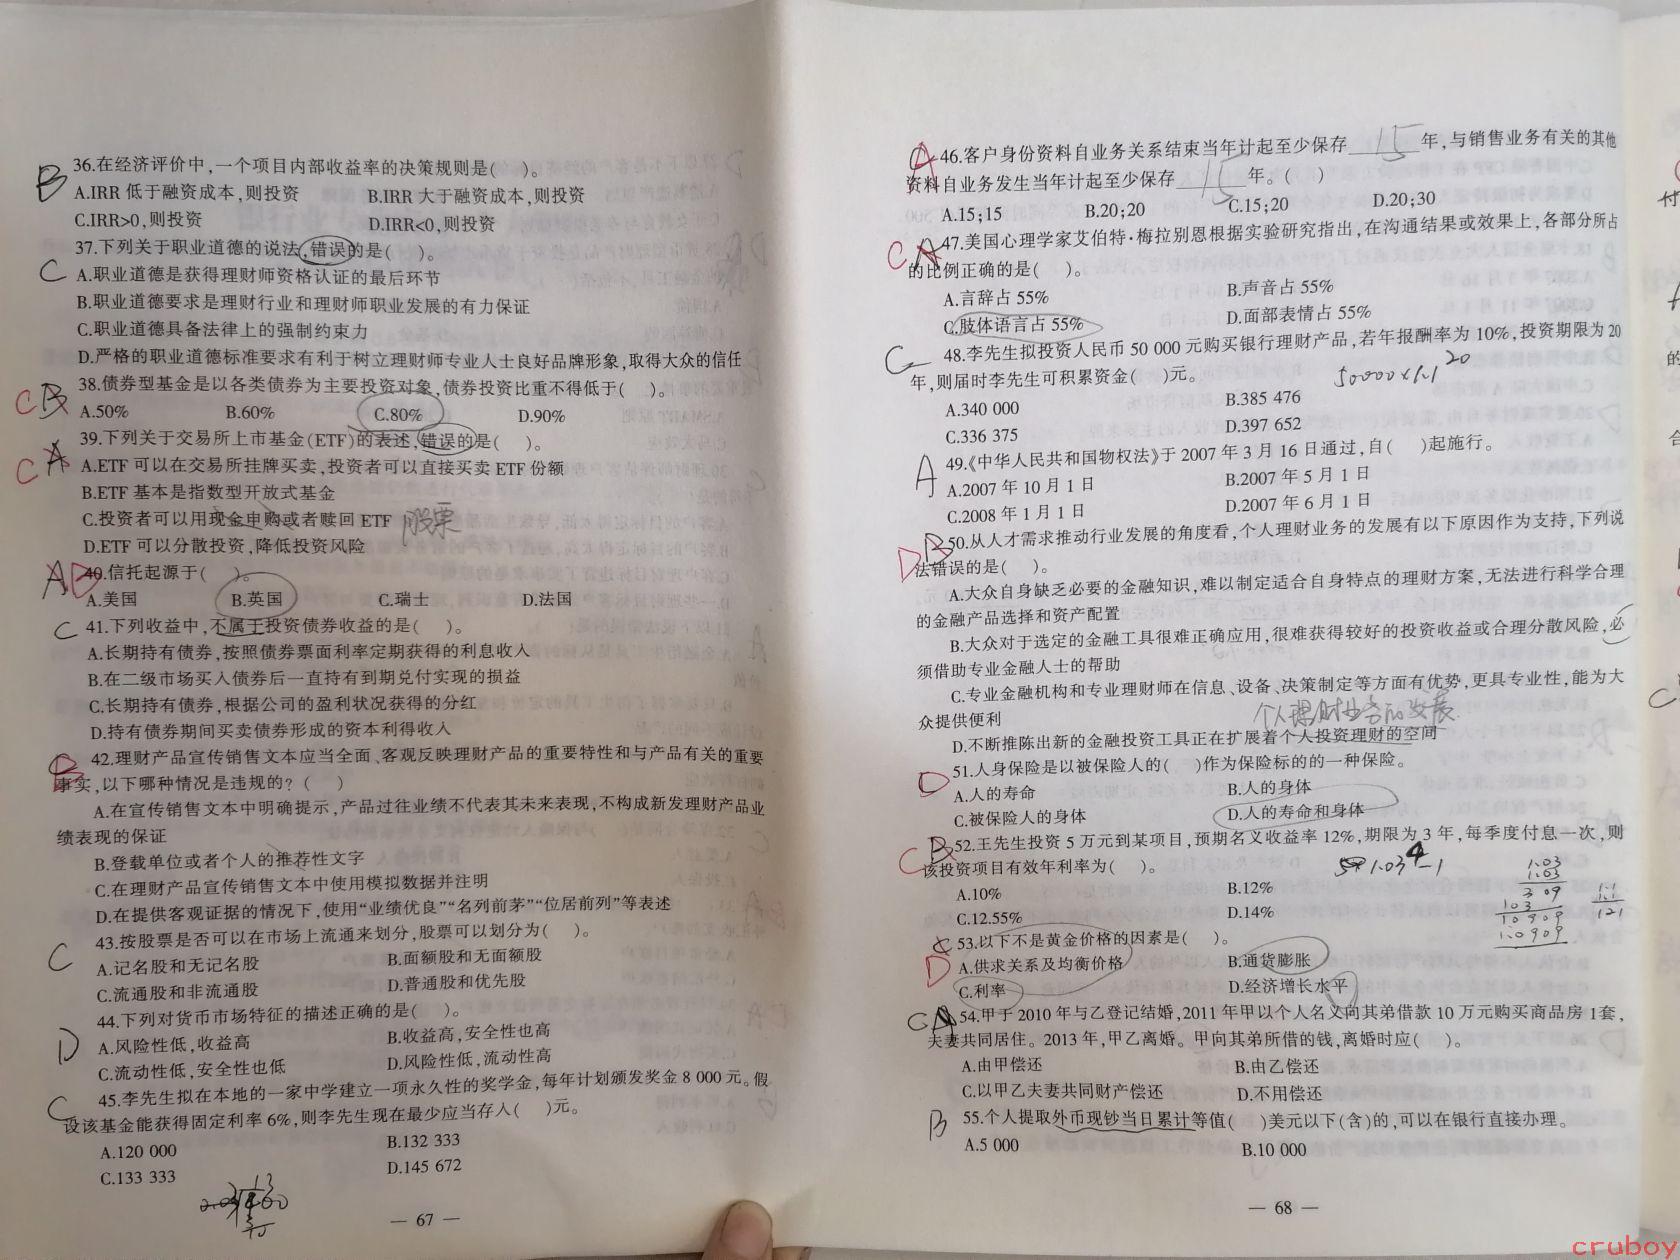 B 36.在经济评价中,一个项目内部收益率的决策规则是(　)。
A.IRR 低于融资成本,则投资 B.IRR 大于融资成本,则投资
C.IRR>0,则投资 D.IRR<0,则投资
37.下列关于职业道德的说法,错误的是(　)。
C A.职业道德是获得理财师资格认证的最后环节
B.职业道德要求是理财行业和理财师职业发展的有力保证
C.职业道德具备法律上的强制约束力
D.严格的职业道德标准要求有利于树立理财师专业人士良好品牌形象,取得大众的信任
C B 38.债券型基金是以各类债券为主要投资对象,债券投资比重不得低于(　)。
A.50% B.60% C.80% D.90%
39.下列关于交易所上市基金(ETF)的表述,错误的是(　)。
C A A.ETF 可以在交易所挂牌买卖,投资者可以直接买卖 ETF 份额
B.ETF 基本是指数型开放式基金
C.投资者可以用现金申购或者赎回 ETF 股票
D.ETF 可以分散投资,降低投资风险
A B 40.信托起源于(　)。
A.美国 B.英国 C.瑞士 D.法国
C 41.下列收益中,不属于投资债券收益的是(　)。
A.长期持有债券,按照债券票面利率定期获得的利息收入
B.在二级市场买入债券后一直持有到期兑付实现的损益
C.长期持有债券,根据公司的盈利状况获得的分红
D.持有债券期间买卖债券形成的资本利得收入
B 42.理财产品宣传销售文本应当全面、客观反映理财产品的重要特性和与产品有关的重要
事实,以下哪种情况是违规的?(　)
A.在宣传销售文本中明确提示,产品过往业绩不代表其未来表现,不构成新发理财产品业
绩表现的保证
B.登载单位或者个人的推荐性文字
C.在理财产品宣传销售文本中使用模拟数据并注明
D.在提供客观证据的情况下,使用“业绩优良”“名列前茅”“位居前列”等表述
C 43.按股票是否可以在市场上流通来划分,股票可以划分为(　)。
A.记名股和无记名股 B.面额股和无面额股
C.流通股和非流通股 D.普通股和优先股
44.下列对货币市场特征的描述正确的是(　)。
D A.风险性低,收益高 B.收益高,安全性也高
C.流动性低,安全性也低 D.风险性低,流动性高
C 45.李先生拟在本地的一家中学建立一项永久性的奖学金,每年计划颁发奖金 8 000 元。假
设该基金能获得固定利率 6%,则李先生现在最少应当存入(　)元。
A.120 000 B.132 333
C.133 333 D.145 672
— 67 —
A 46.客户身份资料自业务关系结束当年计起至少保存 15 年,与销售业务有关的其他
资料自业务发生当年计起至少保存 15 年。(　)
A.15;15 B.20;20 C.15;20 D.20;30
C A 47.美国心理学家艾伯特·梅拉别恩根据实验研究指出,在沟通结果或效果上,各部分所占
的比例正确的是(　)。
A.言辞占 55% B.声音占 55%
C.肢体语言占 55% D.面部表情占 55%
C 48.李先生拟投资人民币 50 000 元购买银行理财产品,若年报酬率为 10%,投资期限为 20
年,则届时李先生可积累资金(　)元。 50000×1.1 20
A.340 000 B.385 476
C.336 375 D.397 652
A 49.《中华人民共和国物权法》于 2007 年 3 月 16 日通过,自(　)起施行。
A.2007 年 10 月 1 日 B.2007 年 5 月 1 日
C.2008 年 1 月 1 日 D.2007 年 6 月 1 日
D B 50.从人才需求推动行业发展的角度看,个人理财业务的发展有以下原因作为支持,下列说
法错误的是(　)。
A.大众自身缺乏必要的金融知识,难以制定适合自身特点的理财方案,无法进行科学合理
的金融产品选择和资产配置
B.大众对于选定的金融工具很难正确应用,很难获得较好的投资收益或合理分散风险,必
须借助专业金融人士的帮助
C.专业金融机构和专业理财师在信息、设备、决策制定等方面有优势,更具专业性,能为大
众提供便利 个人理财业务的发展
D.不断推陈出新的金融投资工具正在扩展着个人投资理财的空间
51.人身保险是以被保险人的(　)作为保险标的的一种保险。
D A.人的寿命 B.人的身体
C.被保险人的身体 D.人的寿命和身体
C B 52.王先生投资 5 万元到某项目,预期名义收益率 12%,期限为 3 年,每季度付息一次,则
该投资项目有效年利率为(　)。 1.03 4 -1
A.10% B.12%
C.12.55% D.14%
1.03
1.03
3 09
103
10909
1.0909
1.1
1.1
121
53.以下不是黄金价格的因素是(　)。
D A.供求关系及均衡价格 B.通货膨胀
C.利率 D.经济增长水平
C A 54.甲于 2010 年与乙登记结婚,2011 年甲以个人名义向其弟借款 10 万元购买商品房 1套,
夫妻共同居住。2013 年,甲乙离婚。甲向其弟所借的钱,离婚时应(　)。
A.由甲偿还 B.由乙偿还
C.以甲乙夫妻共同财产偿还 D.不用偿还
B 55.个人提取外币现钞当日累计等值(　)美元以下(含)的,可以在银行直接办理。
A.5 000 B.10 000
— 68 —
cruboy